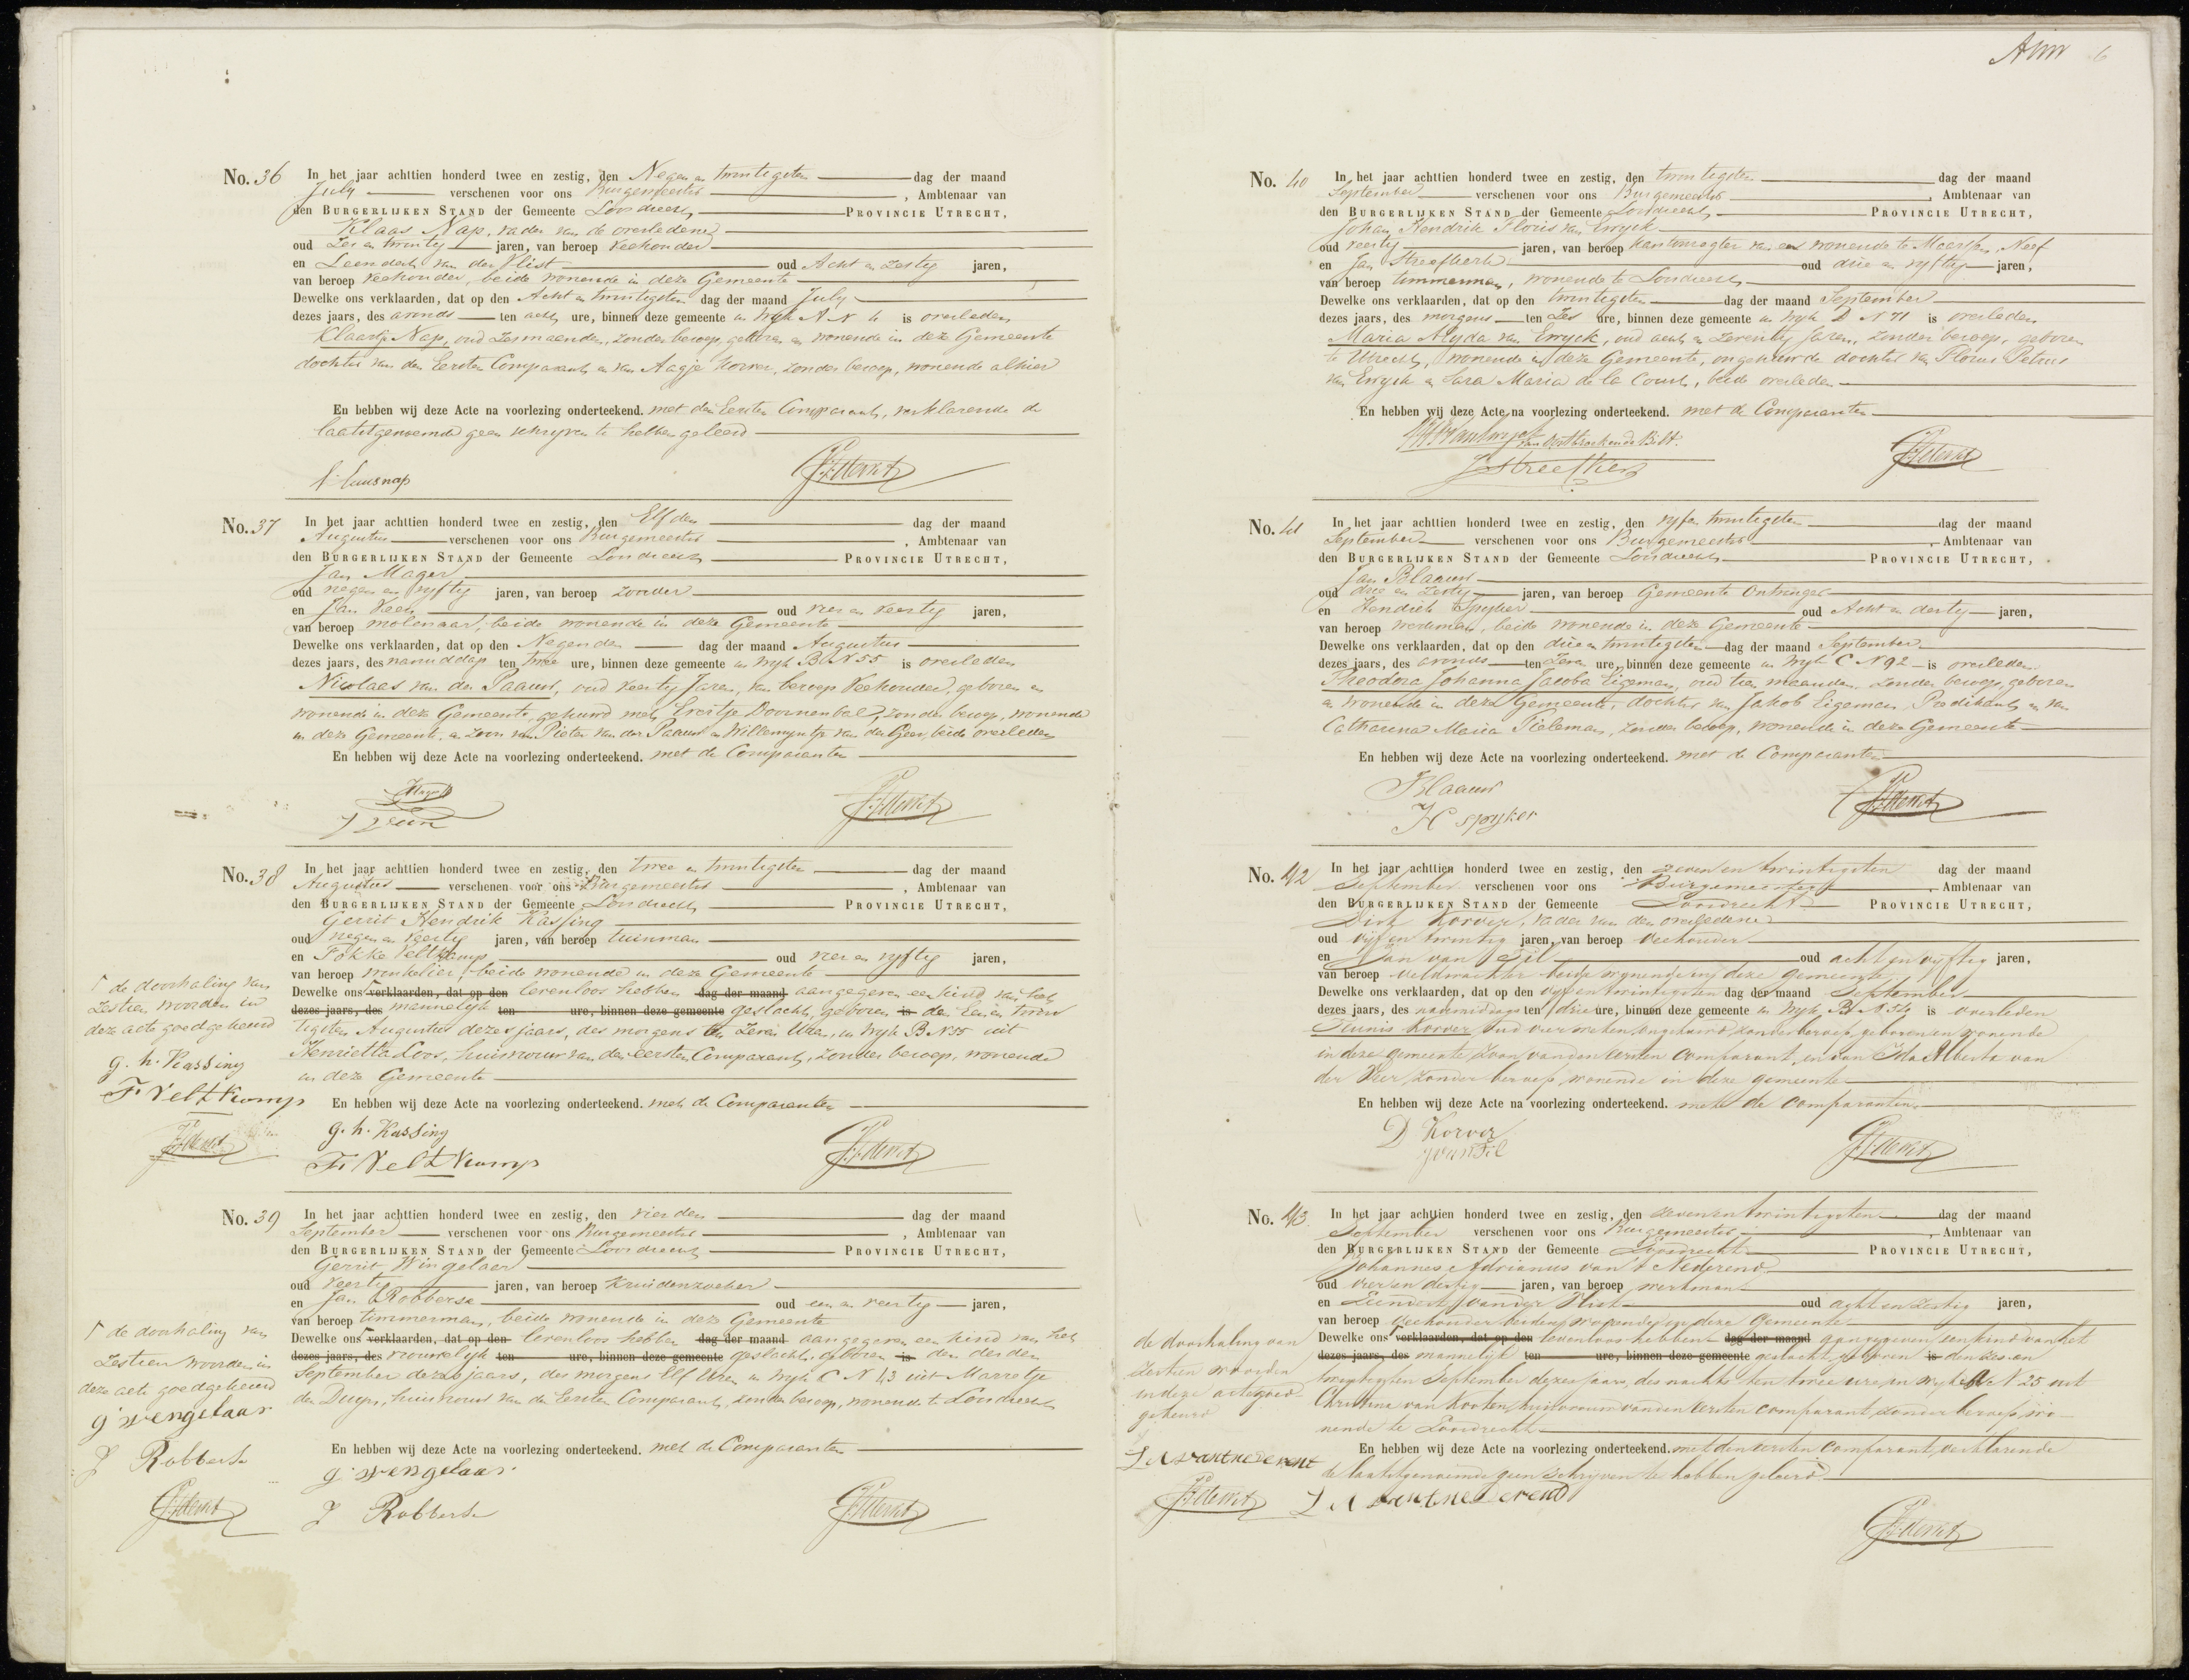 No. 36 In het jaar achttien honderd twee en zestig, den Negen en twintigsten dag der maand
July verschenen voor ons Burgemeester , Ambtenaar van
den BURGERLIJKEN STAND der Gemeente Loosdrecht PROVINCIE UTRECHT,
Klaas Nap, vader van de overledene
oud Zes en twintig jaren, van beroep Veehouder
en Leendert van der Vlist oud Acht en Zestig jaren,
van beroep Veehouder, beide wonende in deze Gemeente
Dewelke ons verklaarden, dat op den Acht en twintigsten dag der maand July
dezes jaars, des avonds ten acht ure, binnen deze gemeente in Wyk A N is overleden
Klaartje Nap, oud Zes maanden, zonder beroep, geboren en wonende in deze Gemeente
dochter van den Eersten Comparant en van Aagje Korver, zonder beroep, wonende alhier
En hebben wij deze Acte na voorlezing onderteekend. met den Eersten Comparant, verklarende de
laatstgenoemde geen schryven te hebben geleerd
No. 37 In het jaar achttien honderd twee en zestig, den Elfden dag der maand
Augustus verschenen voor ons Burgemeester , Ambtenaar van
den BURGERLIJKEN STAND der Gemeente Loosdrecht PROVINCIE UTRECHT,
Jan Mager
oud negen en vyftig jaren, van beroep zonder
en Jan Veen oud vier en veertig jaren,
van beroep molenaar, beide wonende in deze Gemeente
Dewelke ons verklaarden, dat op den Negenden dag der maand Augustus
dezes jaars, des namiddags ten twee ure, binnen deze gemeente in Wyk B N 55 is overleden
Nicolaas van der Paauw, oud veertig Jaren, van beroep Veehouder, geboren en
wonende in deze Gemeente, gehuwd met Evertje Doornenbal, zonder beroep, wonende
in deze Gemeente, en zoon van Pieter van der Paauw en Willemyntje van der Geer, beide overleden
En hebben wij deze Acte na voorlezing onderteekend. met de Comparanten
J Veen
No. 38 In het jaar achttien honderd twee en zestig, den twee en twintigsten dag der maand
Augustus verschenen voor ons Burgemeester , Ambtenaar van
den BURGERLIJKEN STAND der Gemeente Loosdrecht PROVINCIE UTRECHT,
Gerrit Hendrik Kassing
oud negen en veertig jaren, van beroep tuinman
en Fokke Veltkamp oud vier en vyftig jaren,
van beroep winkelier, beide wonende in deze Gemeente
Dewelke ons verklaarden, dat op den levenloos hebben dag der maand aangegeven een kind van het
dezes jaars, des mannelyk ten ure, binnen deze gemeente geslacht, geboren is den Een en twin
tigsten Augustus dezes jaars, des morgens ten Zeven Uren, in Wyk B N 35 uit
Henrietta Loos, huisvrouw van den eersten Comparant, zonder beroep, wonende
in deze Gemeente
En hebben wij deze Acte na voorlezing onderteekend. met de Comparanten
g. h. Kassing
F Veltkamp
de doorhaling van
Zestien woorden in
deze acte goedgekeurd
g. h. Kassing
F Veltkamp
No. 39 In het jaar achttien honderd twee en zestig, den vierden dag der maand
September verschenen voor ons Burgemeester , Ambtenaar van
den BURGERLIJKEN STAND der Gemeente Loosdrecht PROVINCIE UTRECHT,
Gerrit Wingelaar
oud veertig jaren, van beroep Kruidenzoeker
en Jan Robberse oud een en veertig jaren,
van beroep timmerman, beide wonende in deze Gemeente
Dewelke ons verklaarden, dat op den levenloos hebben dag der maand aangegeven een kind van het
dezes jaars, des vrouwelyk ten ure, binnen deze gemeente geslacht, geboren is den derden
September dezes jaars, des morgens Elf Uren in Wyk C N 43 uit Marretje
den Duyn, huisvrouw van de Eersten Comparant, zonder beroep, wonende te Loosdrecht
En hebben wij deze Acte na voorlezing onderteekend. met de Comparanten
g wengelaar
J Robberse
de doorhaling van
Zestien woorden in
deze acte goedgekeurd
g wengelaar
J Robberse
No. 40 In het jaar achttien honderd twee en zestig, den twintigsten dag der maand
September verschenen voor ons Burgemeester , Ambtenaar van
den BURGERLIJKEN STAND der Gemeente Loosdrecht PROVINCIE UTRECHT,
Johan Hendrik Floris van
oud veertig jaren, van beroep Kantonregter van en wonende te Maarssen, Neef
en Jan Streefkerk oud drie en vyftig jaren,
van beroep timmerman, wonende te Loosdrecht
Dewelke ons verklaarden, dat op den twintigsten dag der maand September
dezes jaars, des morgens ten Zes ure, binnen deze gemeente in Wyk D N 71 is overleden
Maria Alyda van, oud acht en Zeventig Jaren, zonder beroep, geboren
te Utrecht, wonende in deze Gemeente, ongehuwde dochter van Florus Petrus
van en Sara Maria de la Court, beide overleden
En hebben wij deze Acte na voorlezing onderteekend. met de Comparanten
J Streefkerk
No. 41 In het jaar achttien honderd twee en zestig, den vyf en twintigsten dag der maand
September verschenen voor ons Burgemeester , Ambtenaar van
den BURGERLIJKEN STAND der Gemeente Loosdrecht PROVINCIE UTRECHT,
Jan Blaauw
oud drie en Zestig jaren, van beroep Gemeente Ontvanger
en Hendrik Spyker oud Acht en dertig jaren,
van beroep werkman, beide wonende in deze Gemeente
Dewelke ons verklaarden, dat op den drie en twintigsten dag der maand September
dezes jaars, des avonds ten Zeven ure, binnen deze gemeente in Wyk C N 92 is overleden
Theodora Johanna Jacoba Eigeman, oud tien maanden, zonder beroep, geboren
en wonende in deze Gemeente, dochter van Jakob Eigeman, Predikant en van
Catharina Maria Tieleman, zonder beroep, wonende in deze Gemeente
En hebben wij deze Acte na voorlezing onderteekend. met de Comparanten
J Blaauw
H spyker
No. 42 In het jaar achttien honderd twee en zestig, den zeven en twintigsten dag der maand
September verschenen voor ons Burgemeester , Ambtenaar van
den BURGERLIJKEN STAND der Gemeente Loosdrecht PROVINCIE UTRECHT,
Dirk Korver, vader van den overledene
oud vijf en twintig jaren, van beroep veehouder
en Jan van Til oud acht en vyftig jaren,
van beroep veldwachter beide wonende in deze gemeente
Dewelke ons verklaarden, dat op den vyf en twintigsten dag der maand September
dezes jaars, des namiddags ten drie ure, binnen deze gemeente in Wyk B N 54 is overleden
Teunis Korver, oud vier weken, ongehuwd, zonder beroep, geboren en wonende
in deze gemeente, zoon van den eersten comparant, en van Ida Alberta van
der Vier, zonder beroep, wonende in deze gemeente
En hebben wij deze Acte na voorlezing onderteekend. met de comparanten
D Korver
J van Til
No. 43 In het jaar achttien honderd twee en zestig, den zeven en twintigsten dag der maand
September verschenen voor ons Burgemeester , Ambtenaar van
den BURGERLIJKEN STAND der Gemeente Loosdrecht PROVINCIE UTRECHT,
Johannes Adrianus van 't Nederend
oud vier en dertig jaren, van beroep werkman
en Leendert van der Vlist oud acht en zestig jaren,
van beroep veehouder beiden wonende in deze gemeente
Dewelke ons verklaarden, dat op den levenloos hebben dag der maand aangegeven een kind van het
dezes jaars, des mannelijk ten ure, binnen deze gemeente geslacht, geboren is den zes en
twintigsten September dezes jaars, des nachts ten twee ure, in wyk A N 25 uit
Christina van Kooten, huisvrouw van den eersten comparant, zonder beroep, wo-
nende te Loosdrecht
En hebben wij deze Acte na voorlezing onderteekend. met den eersten comparant, verklarende
de laatstgenoemde geen schryven te hebben geleerd
de doorhaling van
zestien woorden
in deze acte goed
gekeurd